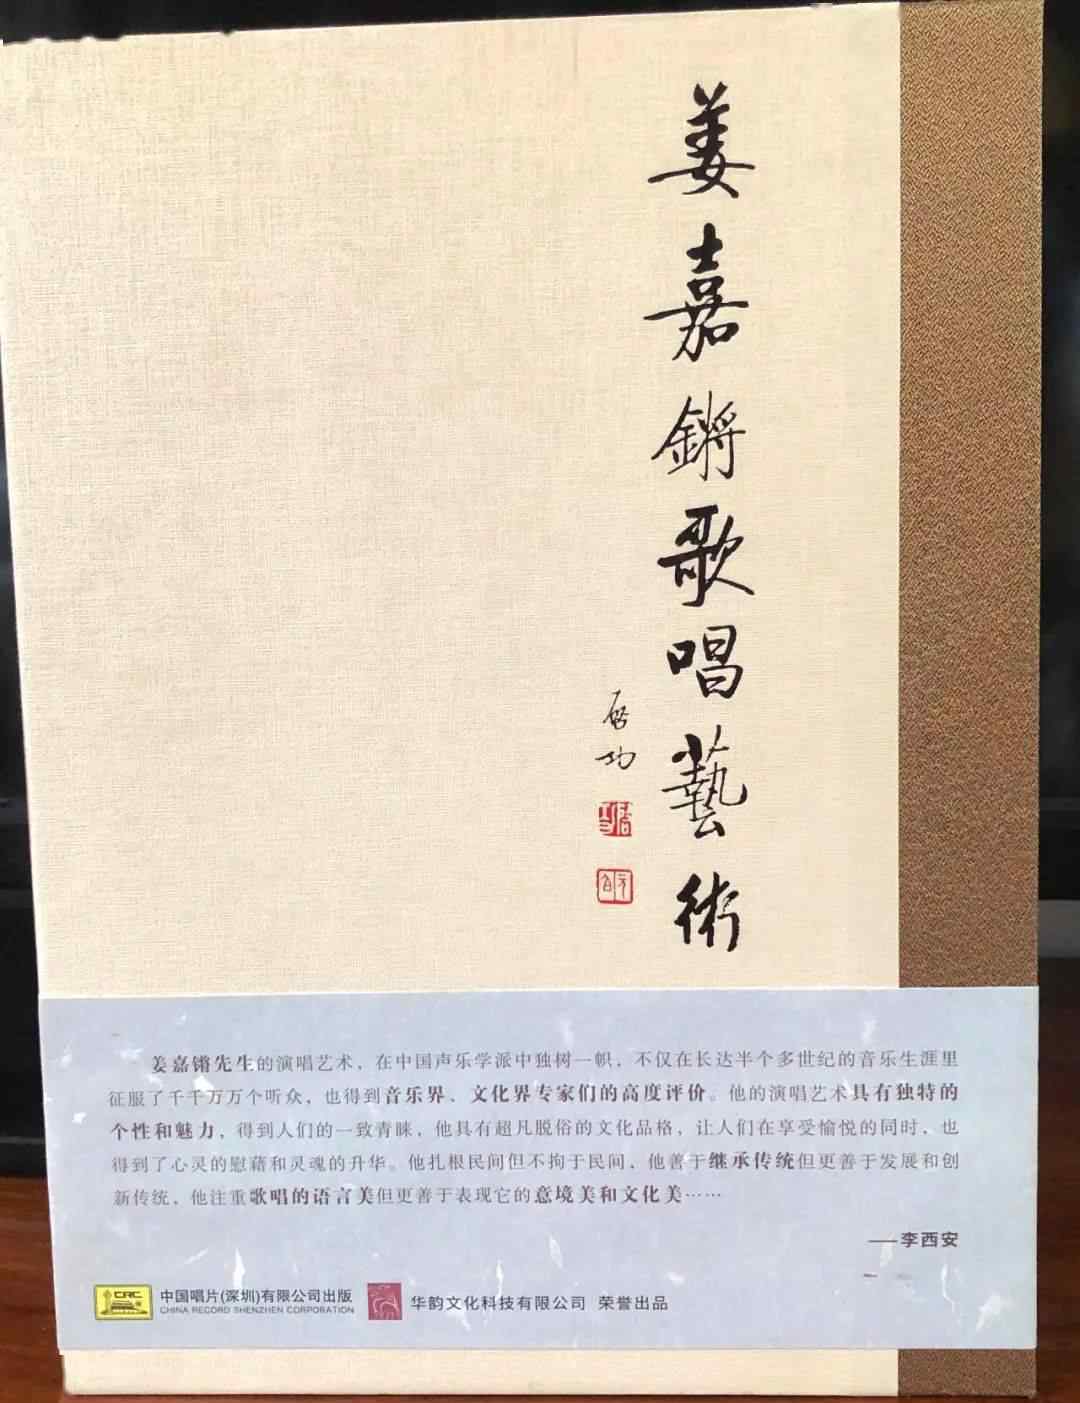 姜嘉鏘歌唱藝術
启功
姜嘉锵先生的演唱艺术，在中国声乐学派中独树一帜，不仅在长达半个多世纪的音乐生涯里
征服了千千万万个听众，也得到音乐界、文化界专家们的高度评价。他的演唱艺术具有独特的
个性和魅力，得到人们的一致青睐，他具有超凡脱俗的文化品格，让人们在享受愉悦的同时，也
得到了心灵的慰藉和灵魂的升华。他扎根民间但不拘于民间，他善于继承传统但更善于发展和创
新传统，他注重歌唱的语言美但更善于表现它的意境美和文化美……
——李西安
CRC
中国唱片(深圳)有限公司出版
CHINA RECORD SHENZHEN CORPORATION
华韵文化科技有限公司 荣誉出品